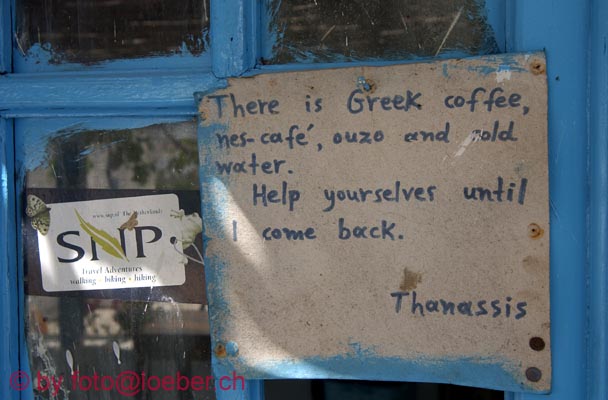 There is Greek coffee,
nes-café, ouzo and cold
water.
Help yourselves until
I come back.
Thanassis
www.snp.nl The Netherlands
SNP
Travel Adventures
walking - biking - hiking
© by foto@loeber.ch